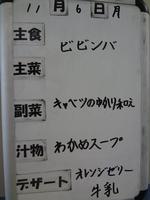 11月6日月
主食 ビビンバ
主菜
副菜 キャベツのゆかり和え
汁物 わかめスープ
デザート オレンジゼリー
牛乳